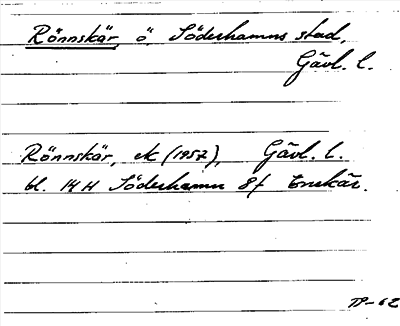 Rönnskär, ö, Söderhamns stad,
Gävl. l.
Rönnskär, ek (1957), Gävl. l.
bl. 14 H Söderhamn 8 f Enskär.
TP-62